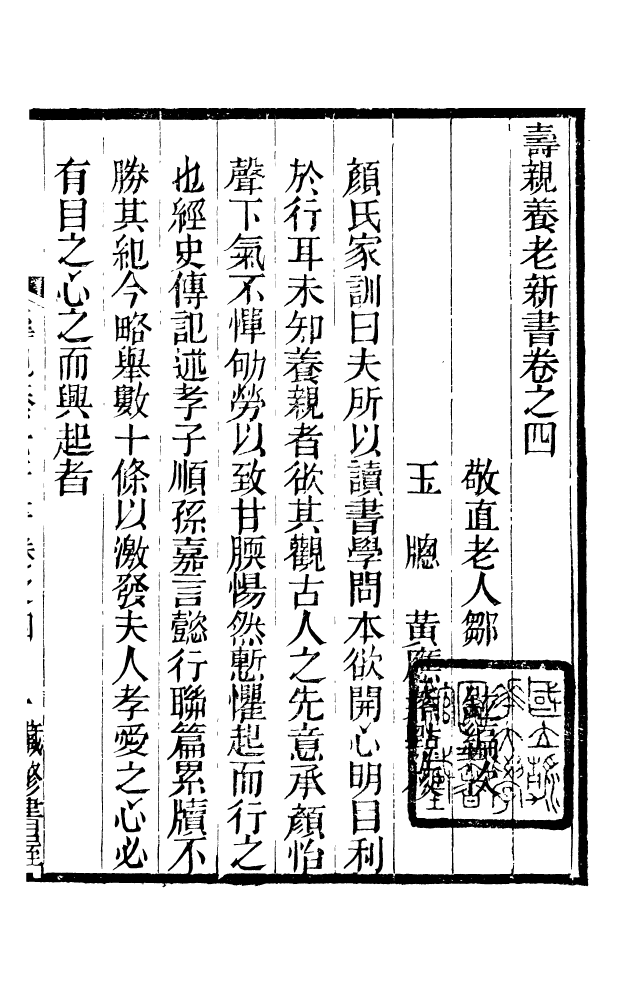 壽親養老新書卷之四
敬直老人鄒鉉編次
玉牕黃應
顏氏家訓曰夫所以讀書學問本欲開心明目利
於行耳未知養親者欲其觀古人之先意承顏怡
聲下氣不憚劬勞以致甘腝惕然慙懼起而行之
也經史傳記述孝子順孫嘉言懿行聯篇累牘不
勝其紀今略舉數十條以激發夫人孝愛之心必
有目之心之而興起者
卷之四
藏修書屋